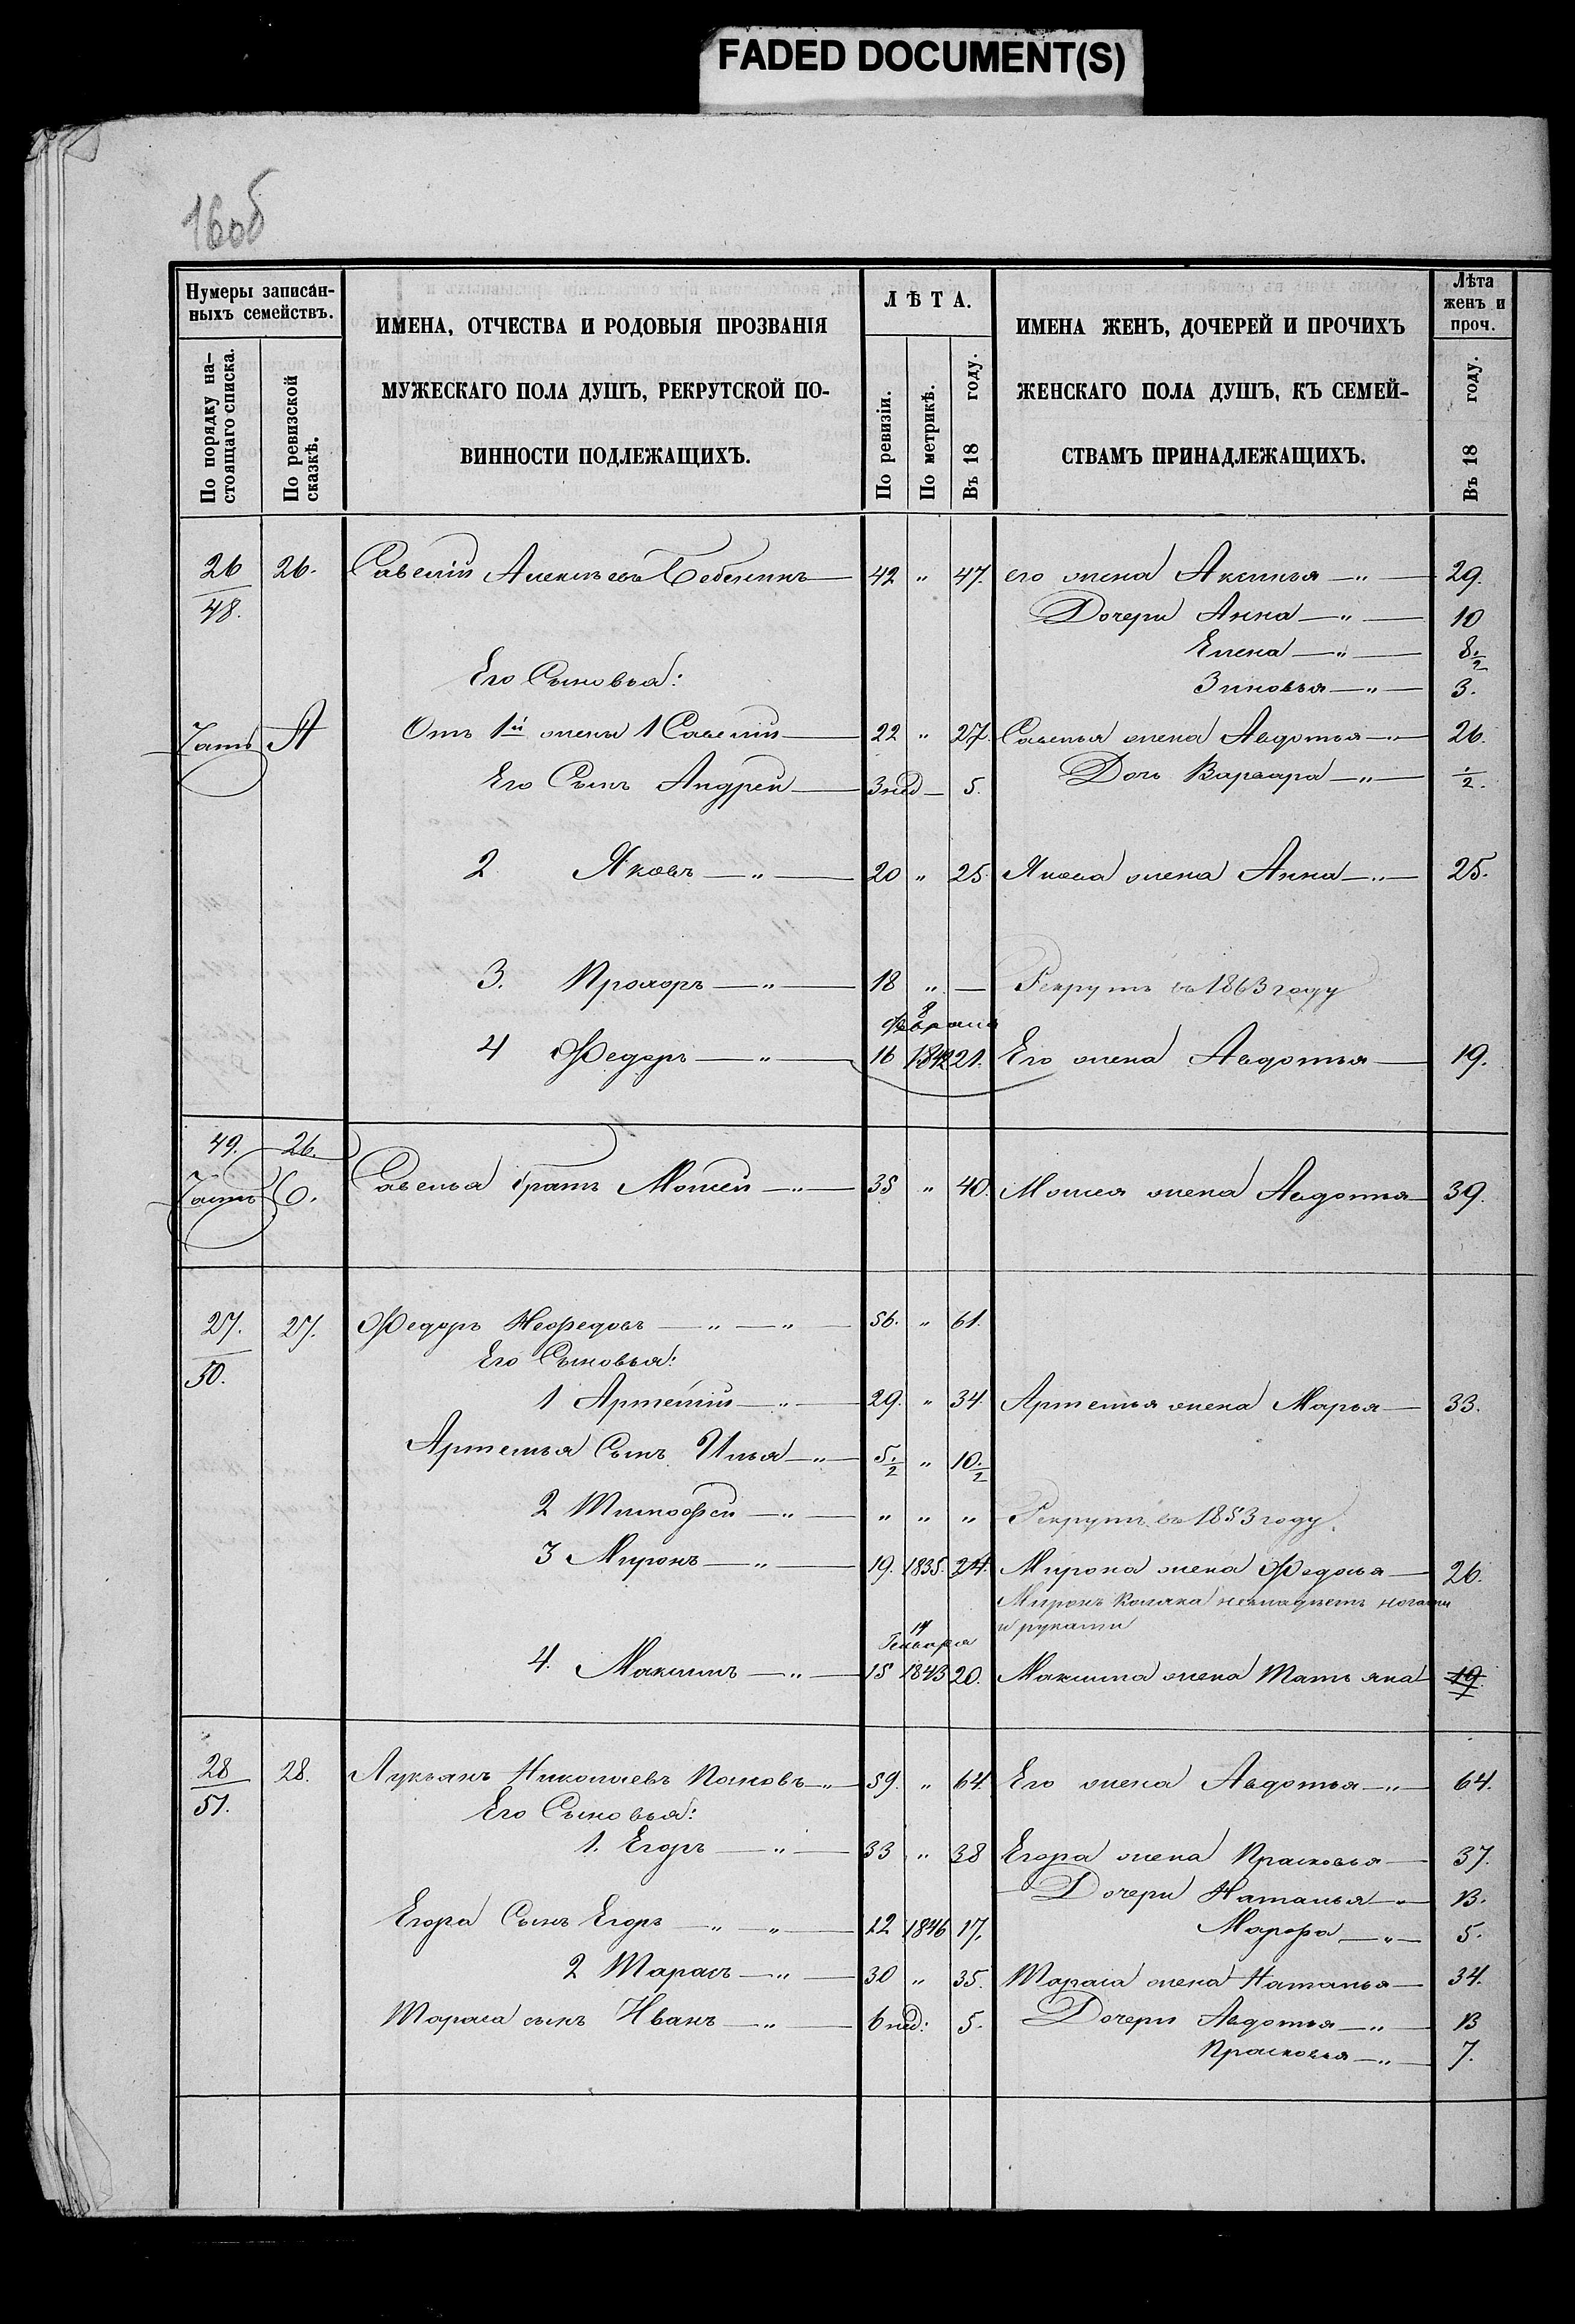 FADED DOCUMENT(S)
16об
Нумеры записан-
ныхъ семействъ.
По порядку на-
стоящаго списка.
По ревизской
сказкѣ.
ИМЕНА, ОТЧЕСТВА И РОДОВЫЯ ПРОЗВАНІЯ
МУЖЕСКАГО ПОЛА ДУШЪ, РЕКРУТСКОЙ ПО-
ВИННОСТИ ПОДЛЕЖАЩИХЪ.
ЛѢТА.
По ревизіи.
По метрикѣ.
Въ 18 году.
ИМЕНА ЖЕНЪ, ДОЧЕРЕЙ И ПРОЧИХЪ
ЖЕНСКАГО ПОЛА ДУШЪ, КЪ СЕМЕЙ-
СТВАМЪ ПРИНАДЛЕЖАЩИХЪ.
Лѣта
женъ и
проч.
Въ 18 году.
26 26. Савелій Алексѣевъ 42 " 47. его жена Аксинья —"— 29.
48. Дочери Анна —"— 10
Елена —"— 8 1/2
Его Сыновья: Зиновья —"— 3.
Часть А Отъ 1й жены 1 Савелій — 22 " 27. Савелья жена Авдотья —"— 26.
Его Сынъ Андрей — 3 нед — 5. Дочь Варвара —"— 1/2.
2 Яковъ —"— 20 " 25. Якова жена Анна —"— 25.
3. Прохоръ —"— 18 " — Рекрутъ въ 1863 году
8
Февраля
4 Федоръ —"— 16 1842 21. Его жена Авдотья — 19.
49. 26.
Часть Б. Савелья братъ Моисей —"— 35 " 40. Моисея жена Авдотья — 39.
27. 27. Федоръ Нефедовъ —"—"— 56. " 61.
50. Его Сыновья:
1 Артемій —"— 29. " 34. Артемья жена Марья — 33.
Артемья Сынъ Илья —"— 5 1/2 " 10 1/2
2 Тимофей —"— " " " Рекрутъ въ 1853 году.
3 Миронъ —"— 19. 1835. 24. Мирона жена Федосья — 26.
Миронъ Каляка невладѣетъ ногами
и руками
14
Генваря
4. Максимъ —"— 15 1843 20. Максима жена Татьяна 19
28 28. Лукьянъ Николаевъ Пановъ —"— 59. " 64. Его жена Авдотья —"— 64.
51. Его Сыновья:
1. Егоръ —"— 33 " 38 Егора жена Прасковья — 37.
Дочери Наталья —"— 13.
Егора Сынъ Егоръ —"—"— 12 1846 17. Марфа —"— 5.
2 Тарасъ —"— 30 " 35. Тараса жена Наталья — 34.
Тараса сынъ Иванъ —"— 6 нед: 5. Дочери Авдотья —"— 13
Прасковья —"— 7.